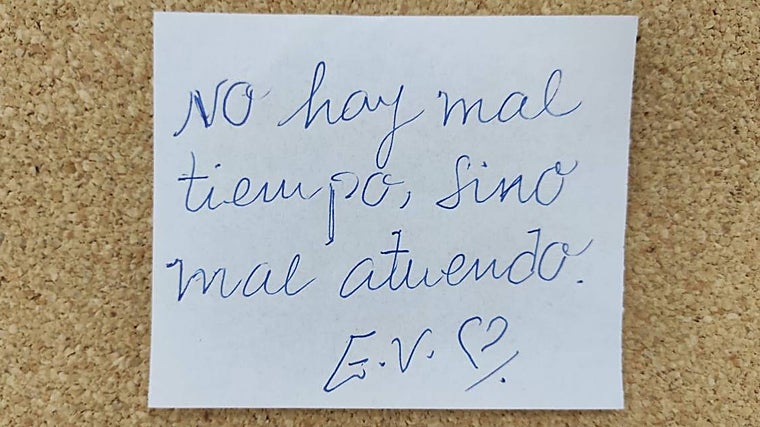 NO hay mal
tiempo, sino
mal atuendo.
E.V. ♡